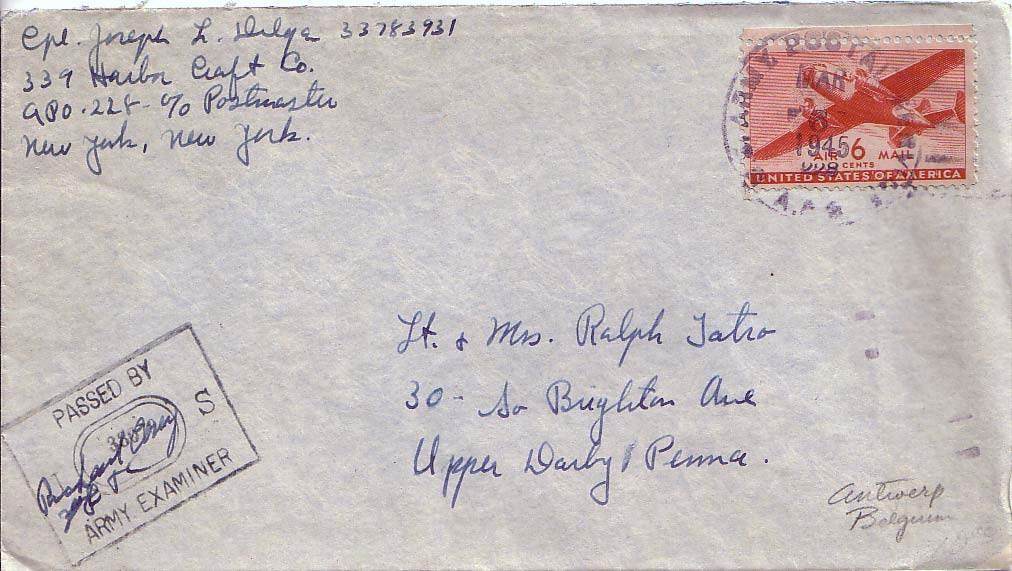 Cpl. Joseph L. 33783931
339 Harbor Craft Co.
APO. 228 - c/o Postmaster
New York, New York.
ARMY POSTAL
MAR
1945
228
A.P.O.
AIR 6 MAIL
CENTS
UNITED STATES OF AMERICA
Lt. & Mrs. Ralph Tatro
30 - So Brighton Ave
Upper Darby, Penna.
PASSED BY
S
ARMY EXAMINER
Antwerp
Belgium